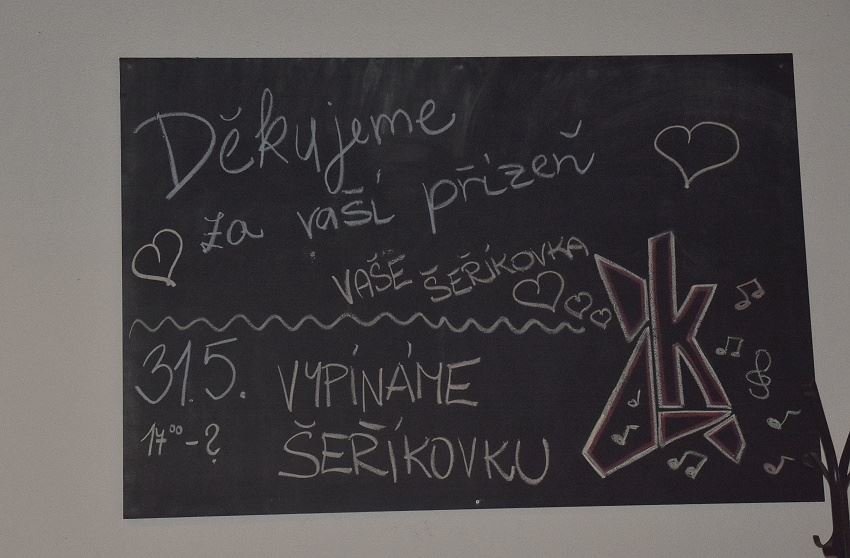 Děkujeme
za vaší přízeň
VAŠE ŠEŘÍKOVKA
31.5. VYPÍNÁME
17⁰⁰-? ŠEŘÍKOVKU